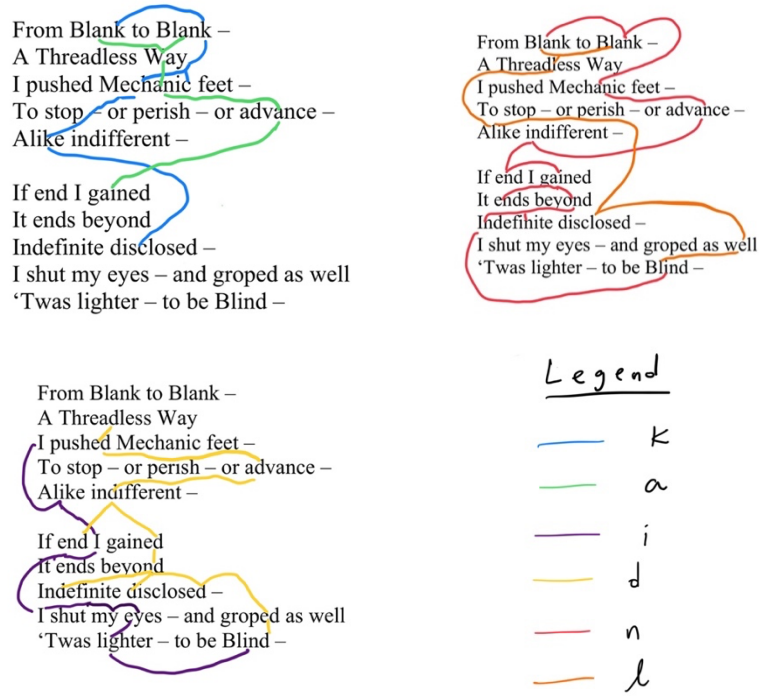 From Blank to Blank –
A Threadless Way
I pushed Mechanic feet –
To stop – or perish – or advance –
Alike indifferent –
If end I gained
It ends beyond
Indefinite disclosed –
I shut my eyes – and groped as well
‘Twas lighter – to be Blind –
From Blank to Blank –
A Threadless Way
I pushed Mechanic feet –
To stop – or perish – or advance –
Alike indifferent –
If end I gained
It ends beyond
Indefinite disclosed –
I shut my eyes – and groped as well
‘Twas lighter – to be Blind –
From Blank to Blank –
A Threadless Way
I pushed Mechanic feet –
To stop – or perish – or advance –
Alike indifferent –
If end I gained
It ends beyond
Indefinite disclosed –
I shut my eyes – and groped as well
‘Twas lighter – to be Blind –
Legend
k
a
i
d
n
l